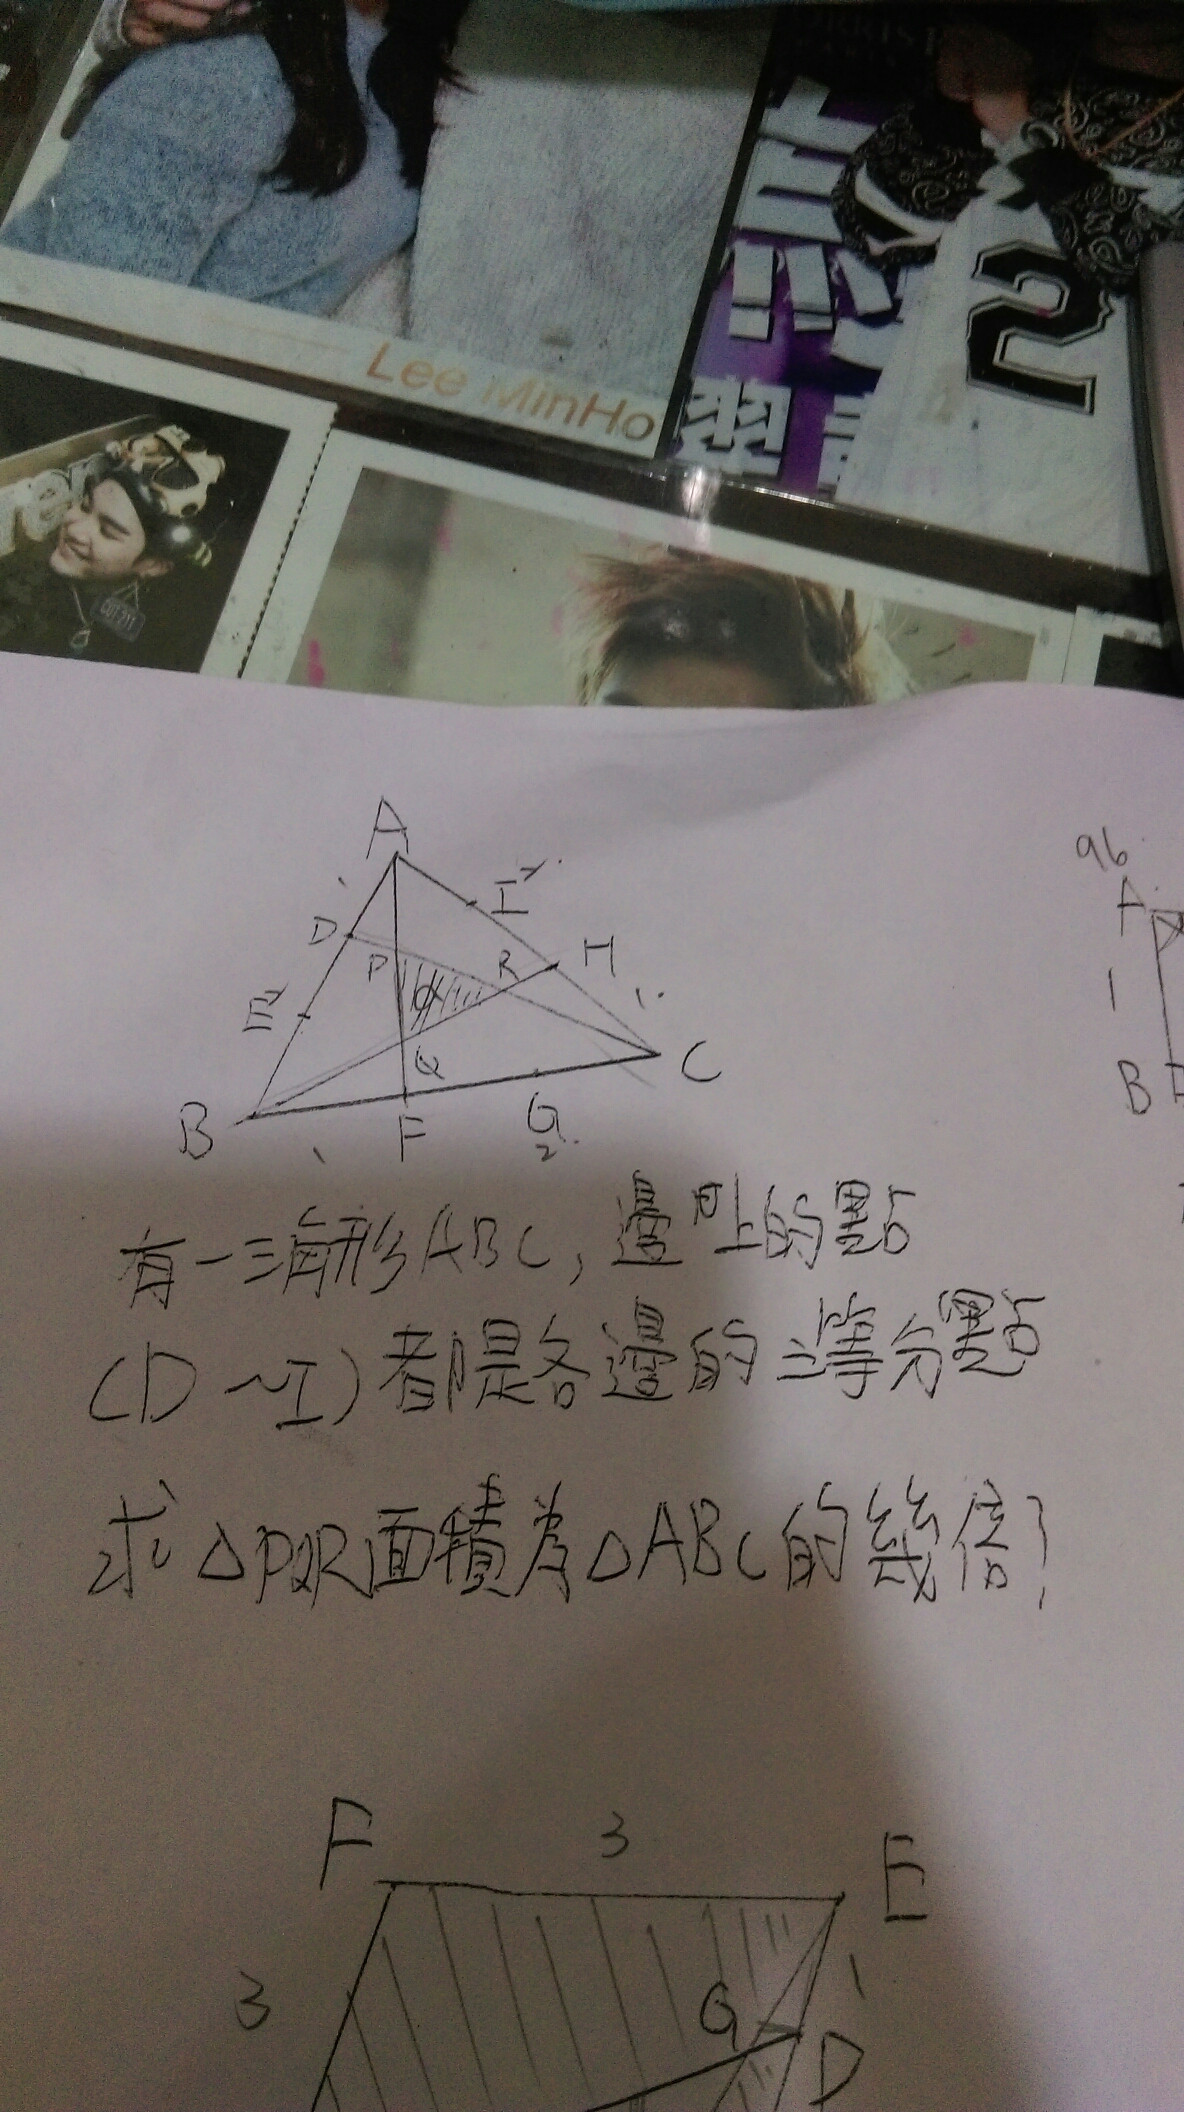 2
Lee MinHo
A
I
D
P
R
H
E
Q
C
B
F
G
2
96
A
1
B
有一三角形ABC, 邊上的點
(D~I)都是各邊的三等分點
求△PQR面積為△ABC的幾倍?
F
3
E
3
G
1
D